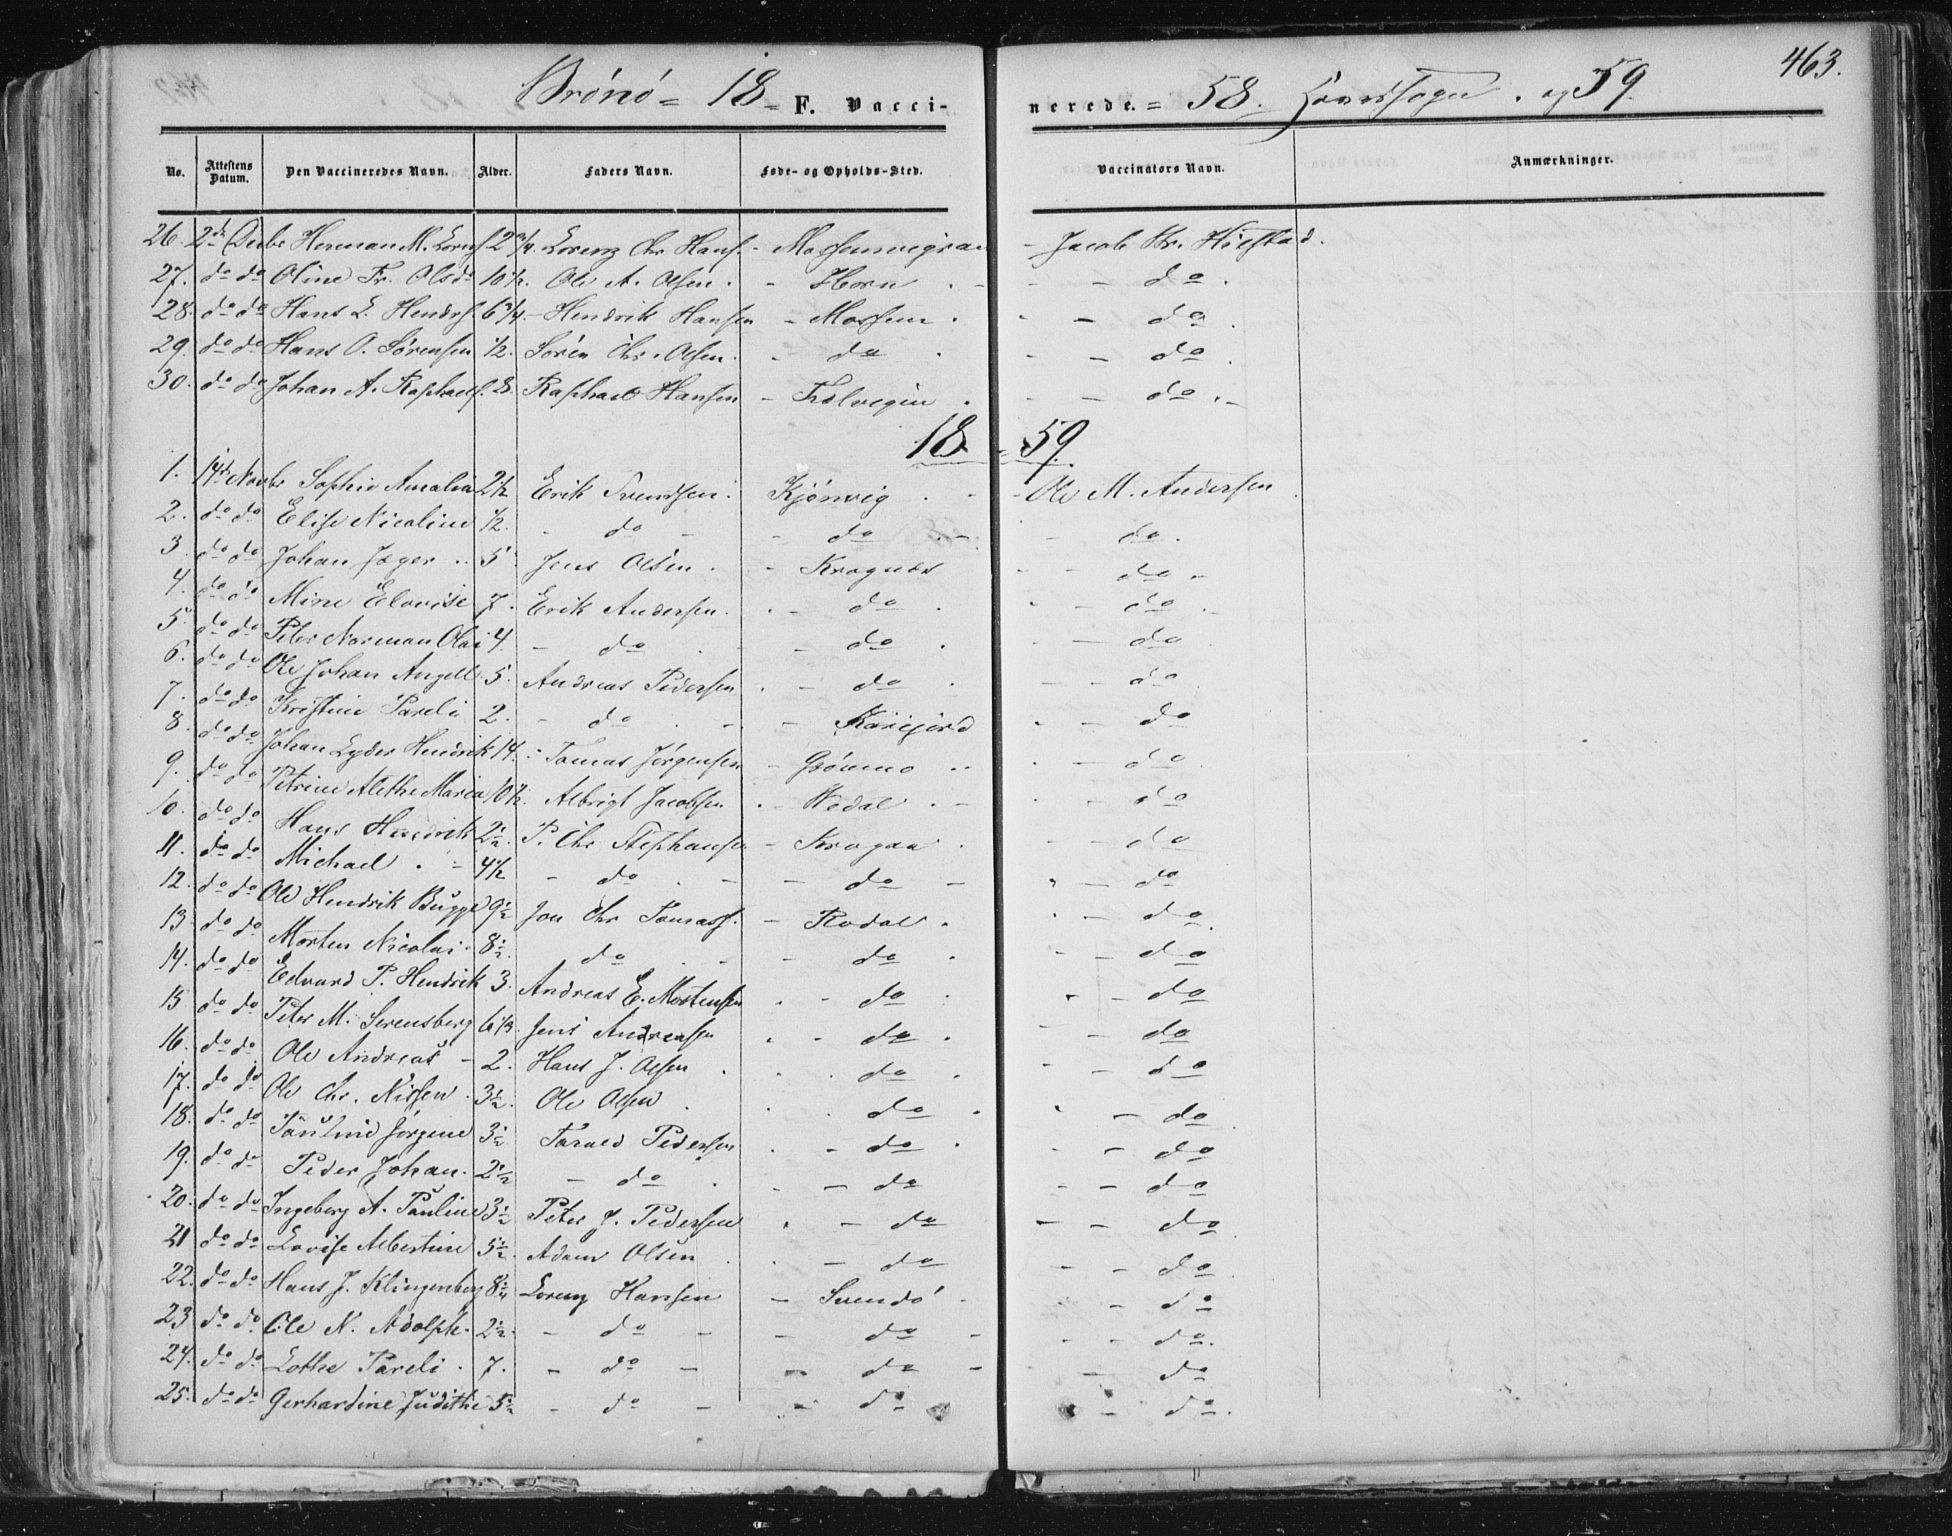 463.
Brönö = 18 = F. Vacci- nerede. = 58. Hovedsogn . og 59.
No. Attestens Datum. Den Vaccineredes Navn. Alder. Faders Navn. Føde- og Opholds-Sted. Vaccinators Navn. Anmærkninger.
26. 2de Decbr Herman M. 2 3/4. Lorenz Chr Hans. - - Jacob Kr.
27. do do Oline Fr. Olsdr 10 1/2. Ole A. Olsen. - Horn . - - - do .
28. do do Hans L. Hendrs. 6 3/4 - Hendrik Hansen - Mossem . - - do .
29. do do Hans O. Sørensen 1/2. Sören Chr. Olsen. - do . - - do .
30. do do Johan A. Raphaels. 8. Raphael Hansen - . - - do . -
18 - 59.
1. 14de Novbr Sophie Amalia 2 1/2 Erik Svendsen. Kjönvig . - - Ole M. Andersen
2. do do Elise Nicoline 1/2. - do - - do . - - do .
3. do do Johan Jæger .. 5 Jens Olsen . - Kragnæs - - do . -
4. do do Mine Elovise 7. Erik Andersen. . - do . - - do . -
5. do do Peter Norman Olai 4. - do - - do . - do
6. do do Ole Johan Angell 5. Andreas Pedersen . - do . - - do
7. do do Kristine Pareli 2. - do . - - . - do
8. do do Johan Lyder Hendrik 14. - Tomas Jørgensen - Grönmo .. . - do .
9. do do Petrine Alethe Maria 10 1/2. Albrigt Jacobsen . - Wedal . - . - do
10. do do Hans Hendrik 2 1/2. P. Chr Stephansen - . - - do
11. do do Michael . - 4 1/2 - do . - - do - . - do
12. do do Ole Hendrik Bugge 9 1/2 Jon Chr Tomass. - Rodal . . - do
13. do do Morten Nicolai. 8 1/2. do . - do . - - do
14. do do Edvard P. Hendrik 3. Andreas E. Mortensen . - do . - do
15. do do Peter M. 6 1/2. Jens Andreassen . - do . - - do
16. do do Ole Andreas - 2. Hans J. Olsen . . do . - - do
17. do do Ole Chr. Nissen . 3 1/2. Ole Olsen . . do . . - do
18. do do Pauline Jørgene 3 1/2 Pedersen . - do . - - do
19. do do Peder Johan. 2 1/2 - do . - do - - do
20. do do Ingeborg A. Pauline 3 1/2 Peter J. Pedersen . - do - - do
21 do do Lovise Albertine 5 1/2. Adam Olsen . - do - - do
22. do do Hans J. Klingenberg 8 Lorenz Hansen - . - do
23 do do Ole N. Adolph. 2 1/2. - do - - do - - - do .
24. do do Lothe Pareli . 7. - do - - do - - do
25. do do Gerhardine Judithe 5 1/2 - do - - do - do .